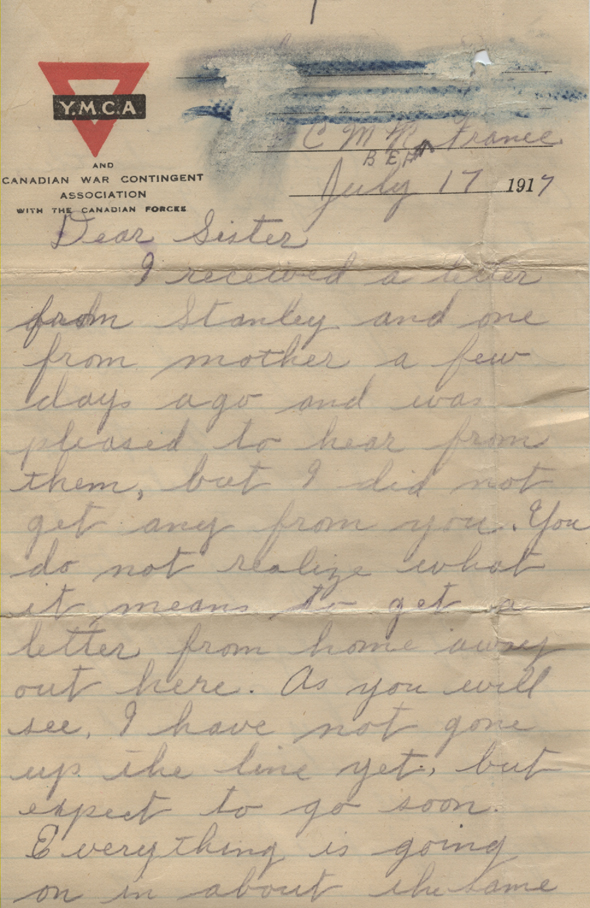 Y.M.C.A
AND
CANADIAN WAR CONTINGENT
ASSOCIATION
WITH THE CANADIAN FORCES
C M R France
B E F
July 17 1917
Dear Sister
I received a letter
from Stanley and one
from mother a few
days ago and was
pleased to hear from
them, but I did not
get any from you. You
do not realize what
it means to get a
letter from home away
out here. As you will
see, I have not gone
up the line yet, but
expect to go soon.
Everything is going
on in about the same